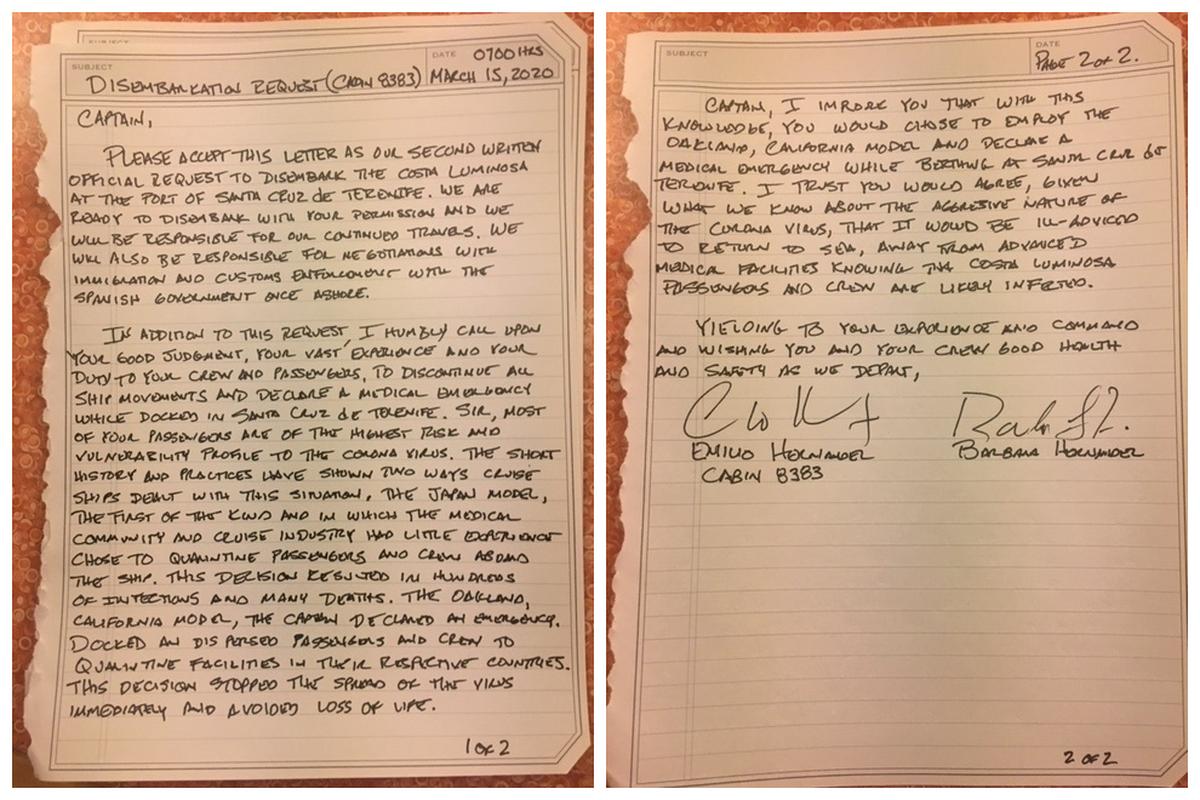 SUBJECT
SUBJECT
DATE 0700 HRS
DISEMBARKATION REQUEST (CABIN 8383) MARCH 15, 2020
CAPTAIN,
PLEASE ACCEPT THIS LETTER AS OUR SECOND WRITTEN
OFFICIAL REQUEST TO DISEMBARK THE COSTA LUMINOSA
AT THE PORT OF SANTA CRUZ de TERENIFE. WE ARE
READY TO DISEMBANK WITH YOUR PERMISSION AND WE
WILL BE RESPONSIBLE FOR OUR CONTINUED TRAVELS. WE
WILL ALSO BE RESPONSIBLE FOR NEGOTIATIONS WITH
IMMIGRATION AND CUSTOMS ENFORCEMENT WITH THE
SPANISH GOVERNMENT ONCE ASHORE.
IN ADDITION TO THIS REQUEST, I HUMBLY CALL UPON
YOUR GOOD JUDGMENT, YOUR VAST EXPERIENCE AND YOUR
DUTY TO YOUR CREW AND PASSENGERS, TO DISCONTINUE ALL
SHIP MOVEMENTS AND DECLARE A MEDICAL EMERGENCY
WHILE DOCKED IN SANTA CRUZ de TERENIFE. SIR, MOST
OF YOUR PASSENGERS ARE OF THE HIGHEST RISK AND
VULNERABILITY PROFILE TO THE CORONA VIRUS. THE SHORT
HISTORY AND PRACTICES HAVE SHOWN TWO WAYS CRUISE
SHIPS DEALT WITH THIS SITUATION. THE JAPAN MODEL,
THE FIRST OF THE KIND AND IN WHICH THE MEDICAL
COMMUNITY AND CRUISE INDUSTRY HAD LITTLE EXPERIENCE
CHOSE TO QUARANTINE PASSENGERS AND CREW ABOARD
THE SHIP. THIS DECISION RESULTED IN HUNDREDS
OF INFECTIONS AND MANY DEATHS. THE OAKLAND,
CALIFORNIA MODEL, THE CAPTAIN DECLARED AN EMERGENCY.
DOCKED AN DISPERSED PASSENGERS AND CREW TO
QUARANTINE FACILITIES IN THEIR RESPECTIVE COUNTRIES.
THIS DECISION STOPPED THE SPREAD OF THE VIRUS
IMMEDIATELY AND AVOIDED LOSS OF LIFE.
1 OF 2
SUBJECT
DATE
PAGE 2 OF 2.
CAPTAIN, I IMPLORE YOU THAT WITH THIS
KNOWLEDGE, YOU WOULD CHOSE TO EMPLOY THE
OAKLAND, CALIFORNIA MODEL AND DECLARE A
MEDICAL EMERGENCY WHILE BERTHING AT SANTA CRUZ de
TERENIFE. I TRUST YOU WOULD AGREE, GIVEN
WHAT WE KNOW ABOUT THE AGGRESIVE NATURE OF
THE CORONA VIRUS, THAT IT WOULD BE ILL-ADVICED
TO RETURN TO SEA, AWAY FROM ADVANCED
MEDICAL FACILITIES KNOWING THE COSTA LUMINOSA
PASSENGERS AND CREW ARE LIKELY INFECTED.
YIELDING TO YOUR EXPERIENCE AND COMMAND
AND WISHING YOU AND YOUR CREW GOOD HEALTH
AND SAFETY AS WE DEPART,
EMILIO HERNANDEZ BARBARA HERNANDEZ
CABIN 8383
2 OF 2